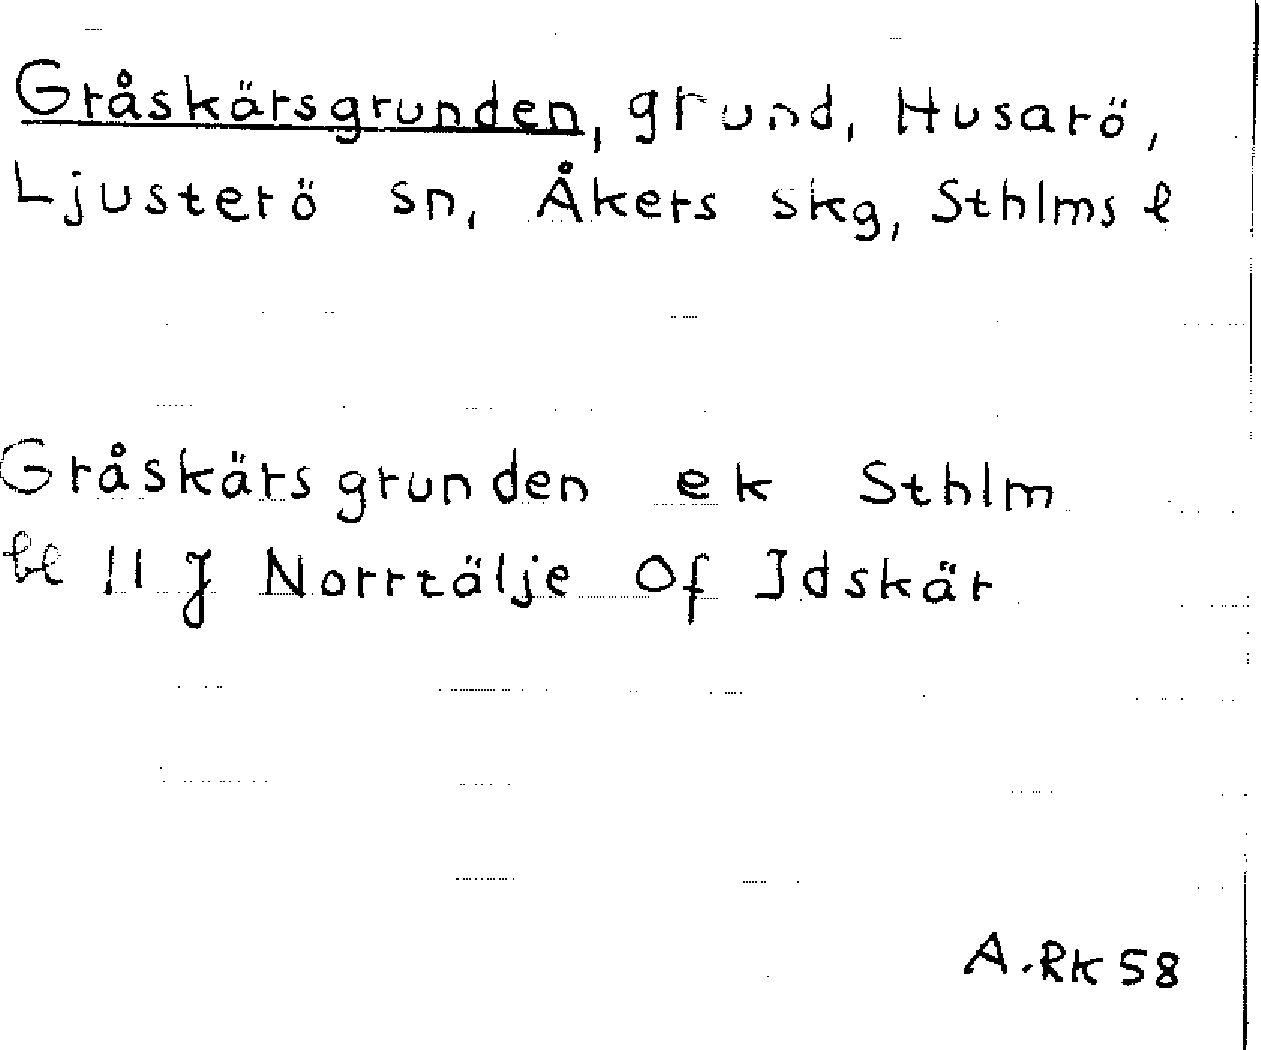 Gråskärsgrunden, grund, Husarö,
Ljusterö sn, Åkers skg, Sthlms l
Gråskärsgrunden ek Sthlm
bl 11 J Norrtälje Of Idskär
A.RK 58